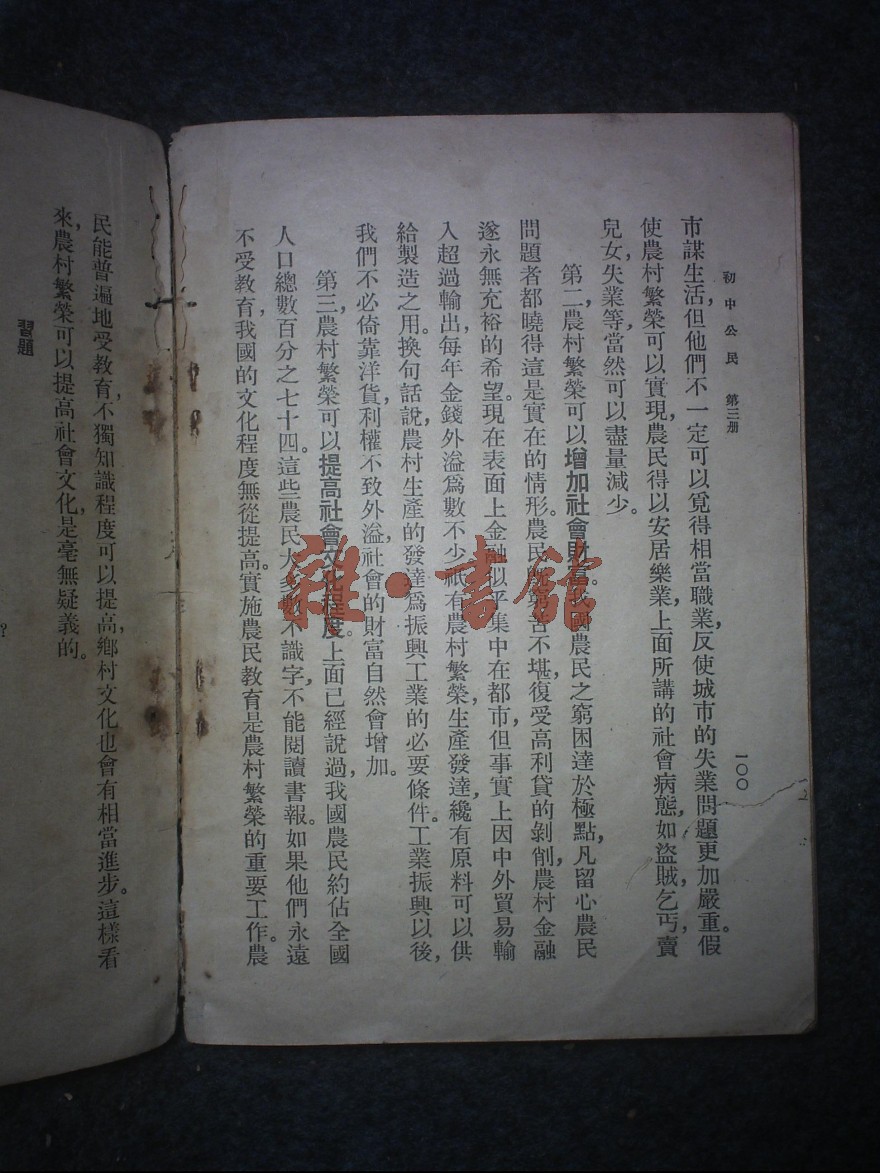 初中公民 第三册
一〇〇
市謀生活，但他們不一定可以覓得相當職業，反使城市的失業問題更加嚴重。假
使農村繁榮可以實現，農民得以安居樂業，上面所講的社會病態如盜賊，乞丐，賣
兒女，失業等，當然可以盡量減少。
第二，農村繁榮可以增加社會財富。我國農民之窮困達於極點，凡留心農民
問題者都曉得這是實在的情形。農民既窮苦不堪，復受高利貸的剝削，農村金融
遂永無充裕的希望。現在表面上金融似乎集中在都市，但事實上因中外貿易輸
入超過輸出，每年金錢外溢爲數不少。祇有農村繁榮，生產發達，纔有原料可以供
給製造之用。換句話說，農村生產的發達爲振興工業的必要條件。工業振興以後，
我們不必倚靠洋貨，利權不致外溢，社會的財富自然會增加。
第三，農村繁榮可以提高社會文化程度。上面已經說過，我國農民約佔全國
人口總數百分之七十四。這些農民大多數不識字，不能閱讀書報。如果他們永遠
不受教育，我國的文化程度無從提高。實施農民教育是農村繁榮的重要工作。農
民能普遍地受教育，不獨知識程度可以提高，鄉村文化也會有相當進步。這樣看
來，農村繁榮可以提高社會文化，是毫無疑義的。
習題
?
雜·書館